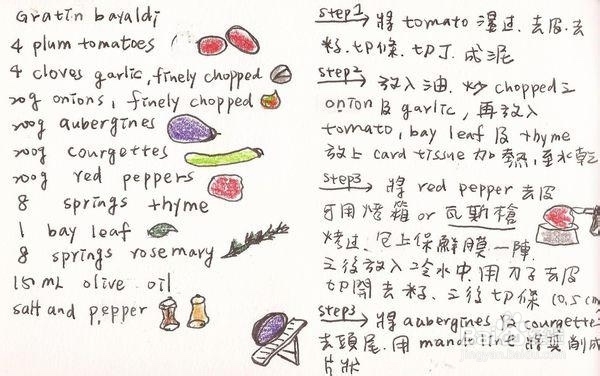 Gratin bayaldi
4 plum tomatoes
4 cloves garlic, finely chopped
20g onions, finely chopped
200g aubergines
200g courgettes
200g red peppers
8 springs thyme
1 bay leaf
8 springs rosemary
15 mL olive oil
salt and pepper
step1 將 tomato 燙过. 去皮. 去
籽. 切條. 切丁. 成泥
step2 放入油. 炒 chopped 之
onion 及 garlic, 再放入
tomato, bay leaf 及 thyme
放上 card tissue 加熱, 至水乾
step3 將 red pepper 去皮
可用烤箱 or 瓦斯槍
烤过. 包上保鮮膜一陣.
之後放入冷水中. 用刀子去皮
切開去籽. 之後切條 (0.5 cm
step3 將 aubergines 及 courgettes
去頭尾. 用 mandoline 將其削成
片狀